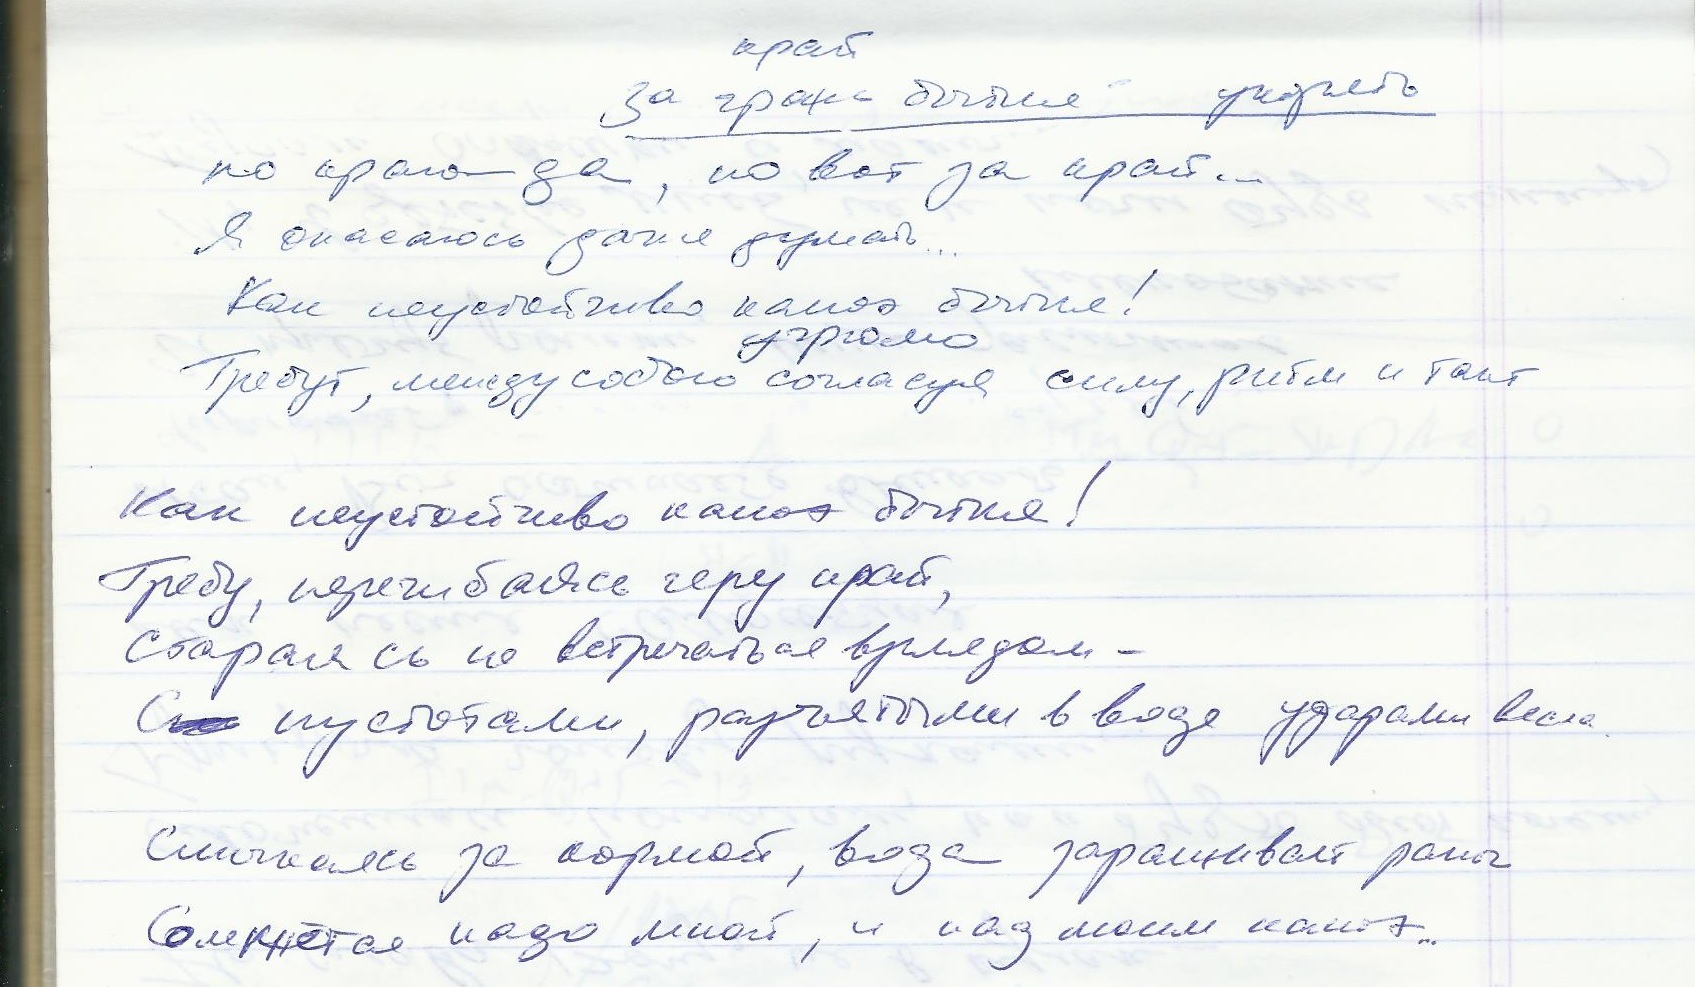 край
За грань бытия
по краю да, но вот за край...
Я опасаюсь даже думать...
Как неустойчиво каноэ бытия!
угрюмо
Гребут, между собою согласуя силу, ритм и такт
Как неустойчиво каноэ бытия!
Гребу, перегибаясь через край,
Стараясь не встречаться взглядом –
С пустотами, разъятыми в воде ударами весла.
Смыкаясь за кормой, вода заращивает раны
Сомкнётся надо мной, и над моим каноэ...